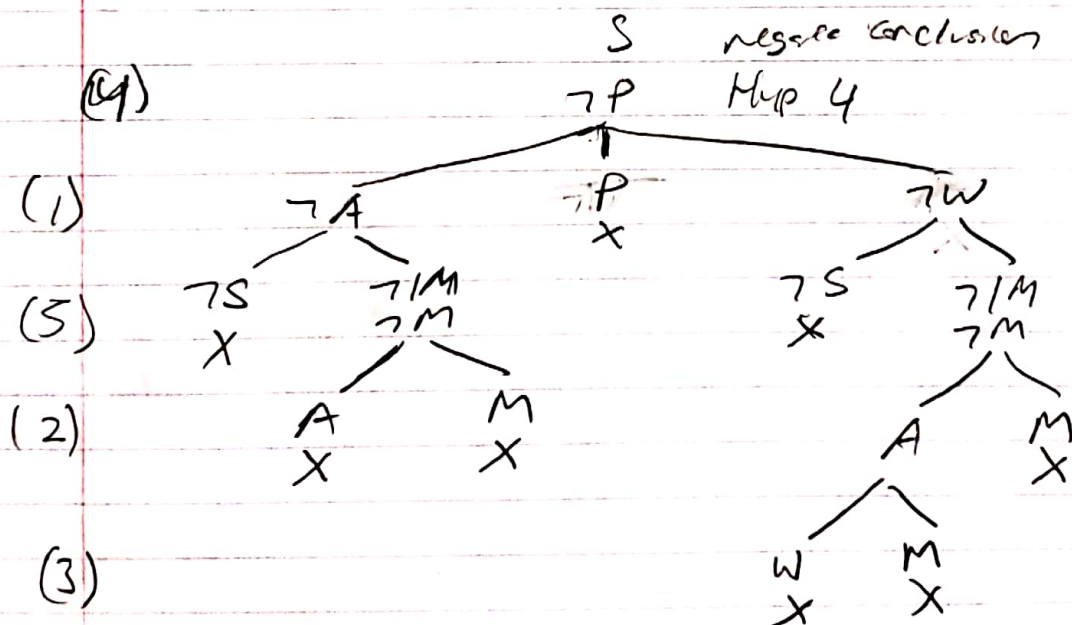 S negate conclusion
(4) ¬P Hyp 4
(1) ¬A P ¬W
X
¬S ¬IM ¬S ¬IM
(5) X ¬M X ¬M
(2) A M A M
X X X
(3) W M
X X